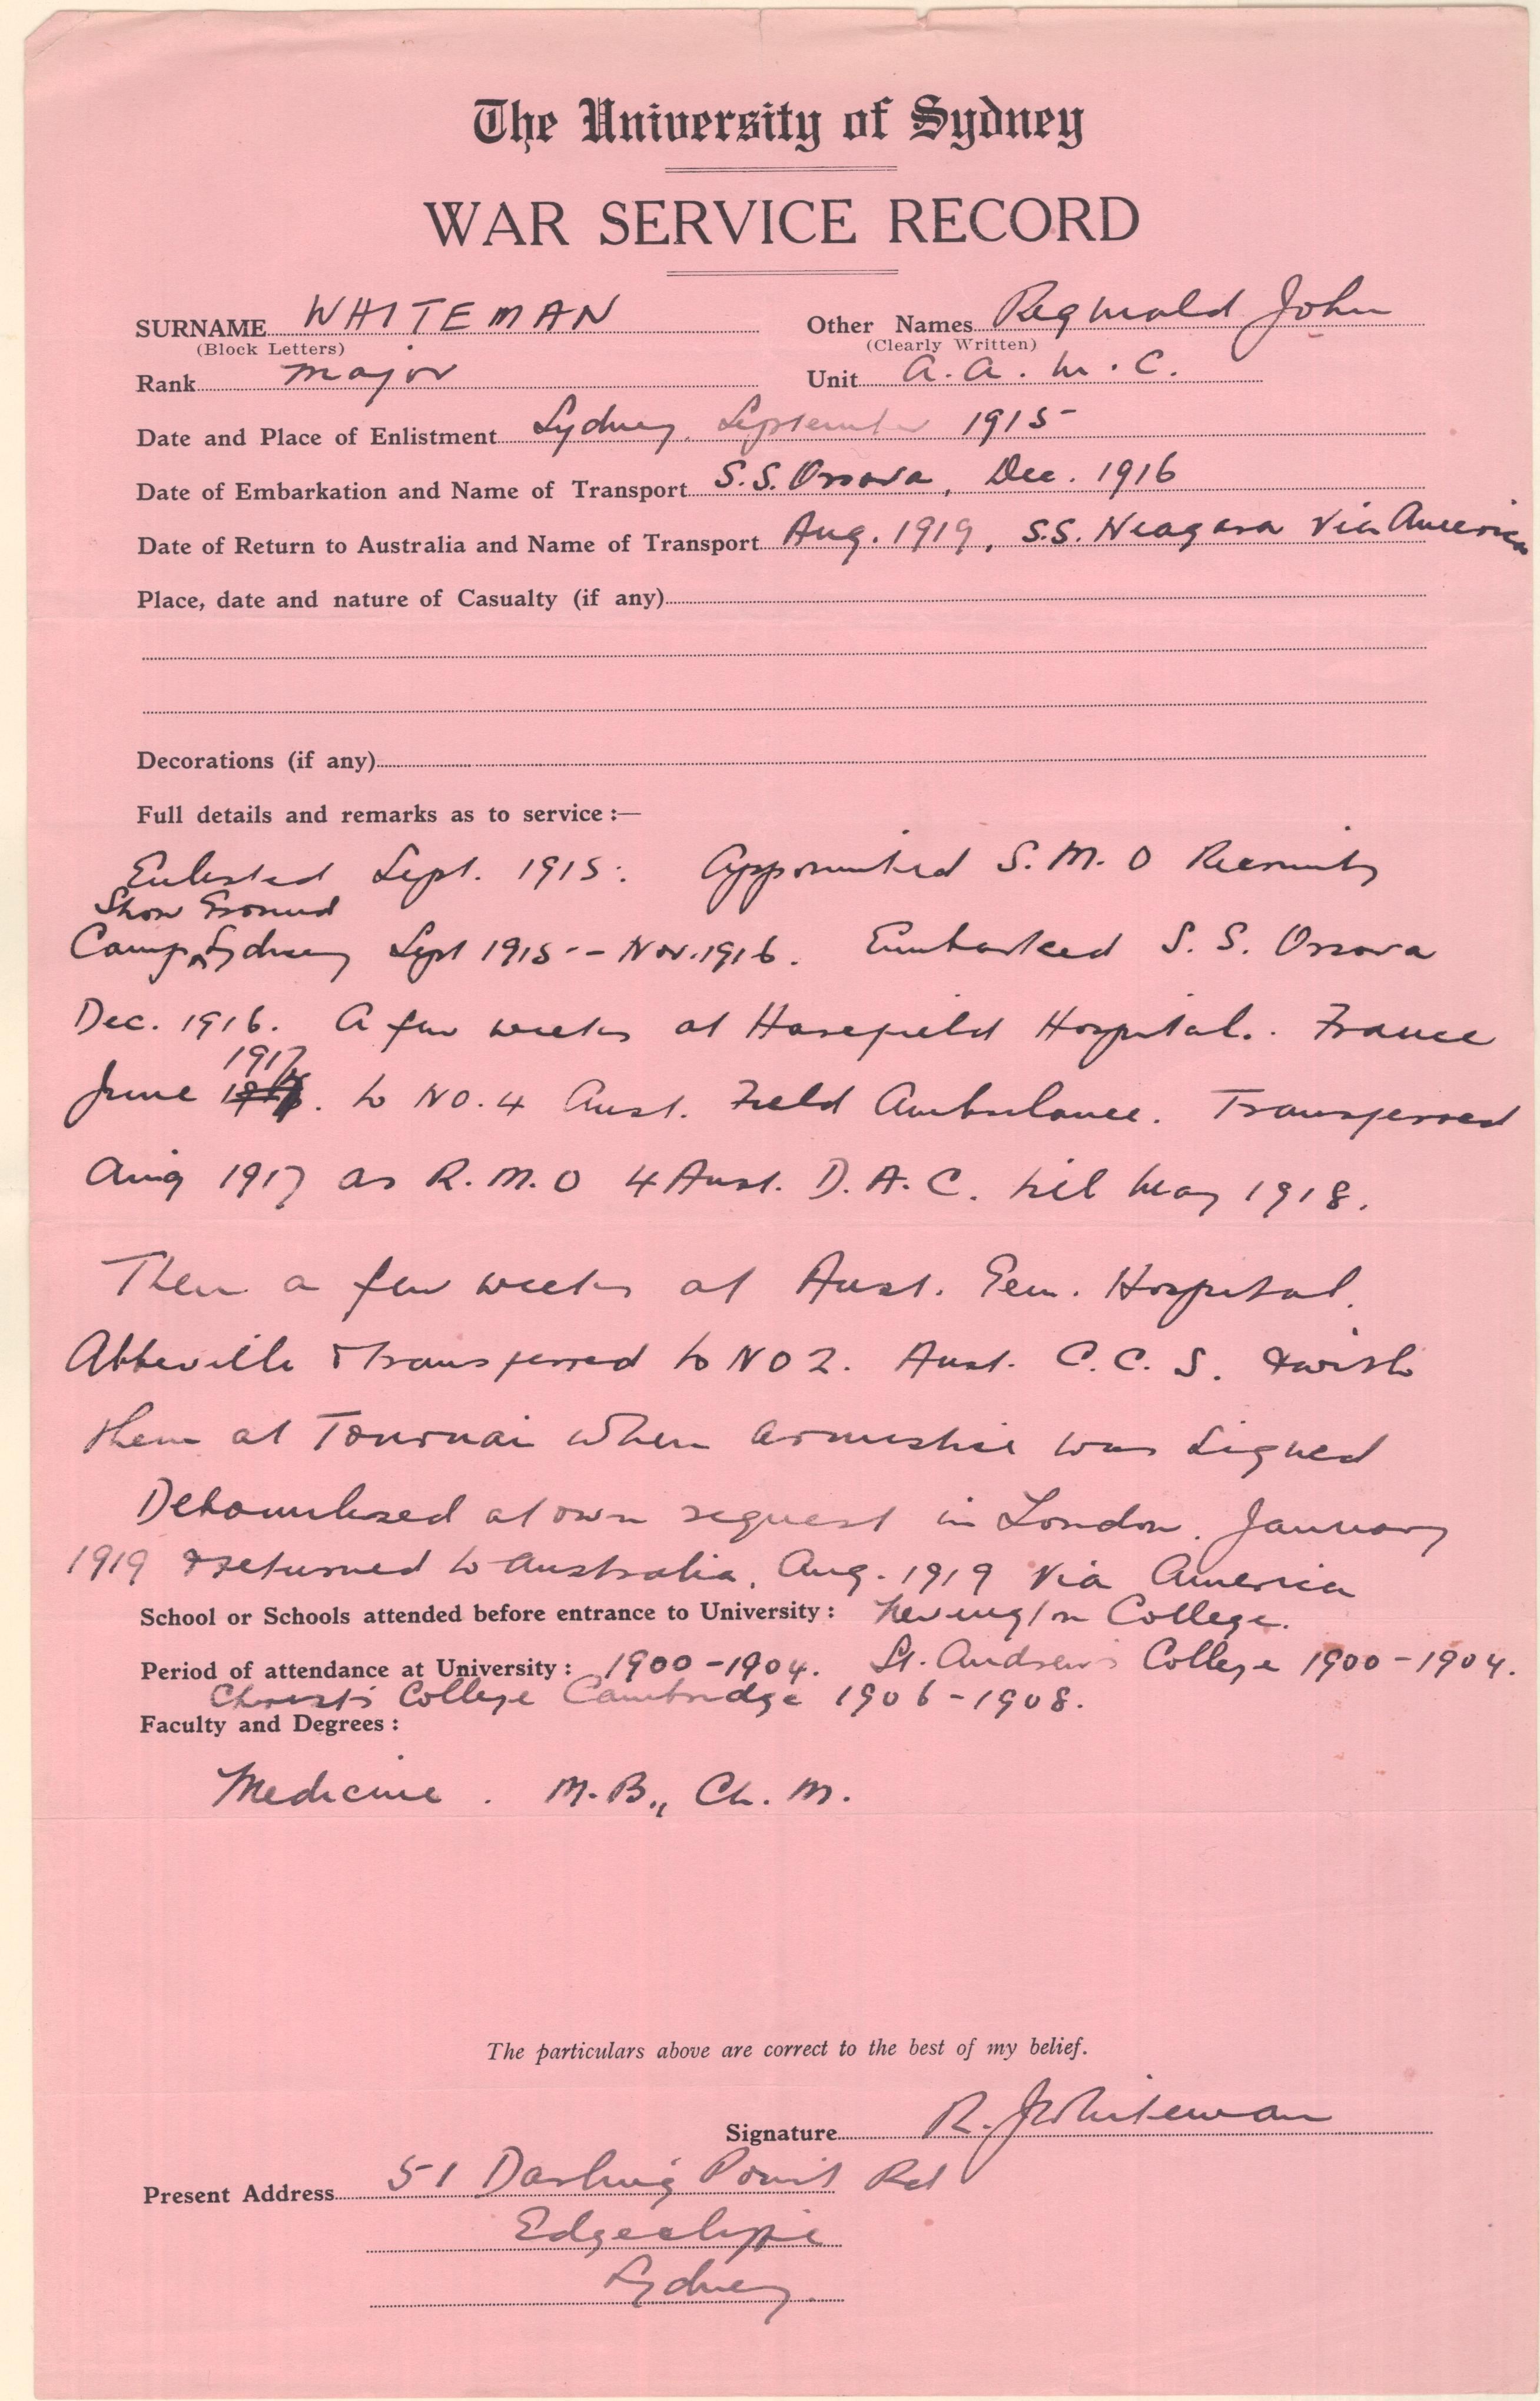 The University of Sydney
WAR SERVICE RECORD
SURNAME WHITEMAN Other Names Reginald John
(Block Letters) (Clearly Written)
Rank Major Unit A.A.M.C.
Date and Place of Enlistment Sydney, September 1915
Date of Embarkation and Name of Transport S.S. Orsova, Dec. 1916
Date of Return to Australia and Name of Transport Aug. 1919, S.S. Niagara Via America
Place, date and nature of Casualty (if any)
Decorations (if any)
Full details and remarks as to service :—
Enlisted Sept. 1915. Appointed S.M.O Recruits
Show Ground
Camp, Sydney Sept 1915 -- Nov. 1916. Embarked S.S. Orsova
Dec. 1916. A few weeks at Harefield Hospital. France
1917
June to NO. 4 Aust. Field Ambulance. Transferred
Aug 1917 as R.M.O 4 Aust. D.A.C. till May 1918.
Then a few weeks at Aust. Gen. Hospital,
Abbeville & transferred to NO 2. Aust. C.C.S. & with
them at Tournai when armistice was signed
Demobilised at own request in London, January
1919 & returned to Australia, Aug. 1919 via America
School or Schools attended before entrance to University : Newington College.
Period of attendance at University : 1900-1904. St. Andrew's College 1900-1904.
Christ's College Cambridge 1906-1908.
Faculty and Degrees :
Medicine. M.B., Ch.M.
The particulars above are correct to the best of my belief.
Signature R.J Whiteman
Present Address 51 Darling Point Rd
Edgecliffe
Sydney